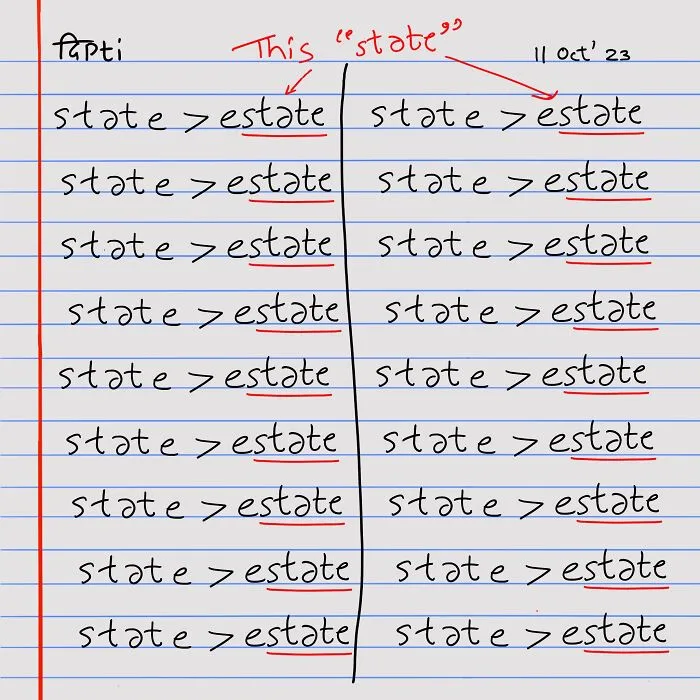 दिप्ti This “state” 11 Oct' 23
state > estate state > estate
state > estate state > estate
state > estate state > estate
state > estate state > estate
state > estate state > estate
state > estate state > estate
state > estate state > estate
state > estate state > estate
state > estate state > estate